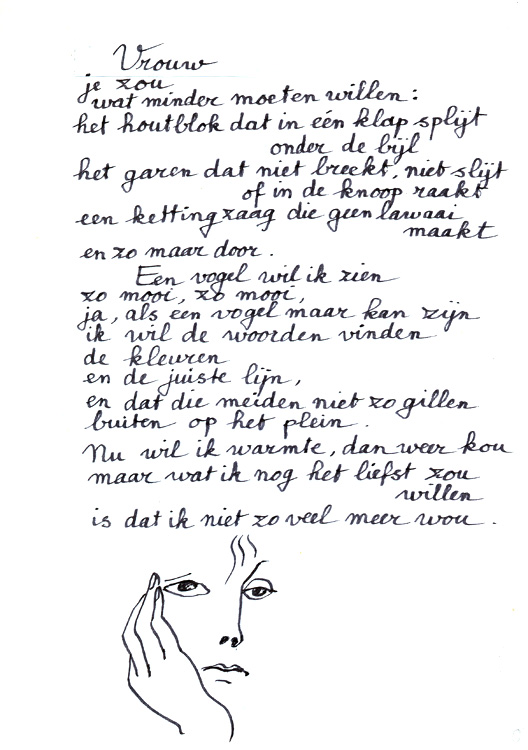 Vrouw
je zou
wat minder moeten willen:
het houtblok dat in één klap splijt
onder de bijl
het garen dat niet breekt, niet slijt
of in de knoop raakt
een kettingzaag die geen lawaai
maakt
en zo maar door.
Een vogel wil ik zien
zo mooi, zo mooi,
ja, als een vogel maar kan zijn
ik wil de woorden vinden
de kleuren
en de juiste lijn,
en dat die meiden niet zo gillen
buiten op het plein.
Nu wil ik warmte, dan weer kou
maar wat ik nog het liefst zou
willen
is dat ik niet zo veel meer wou.